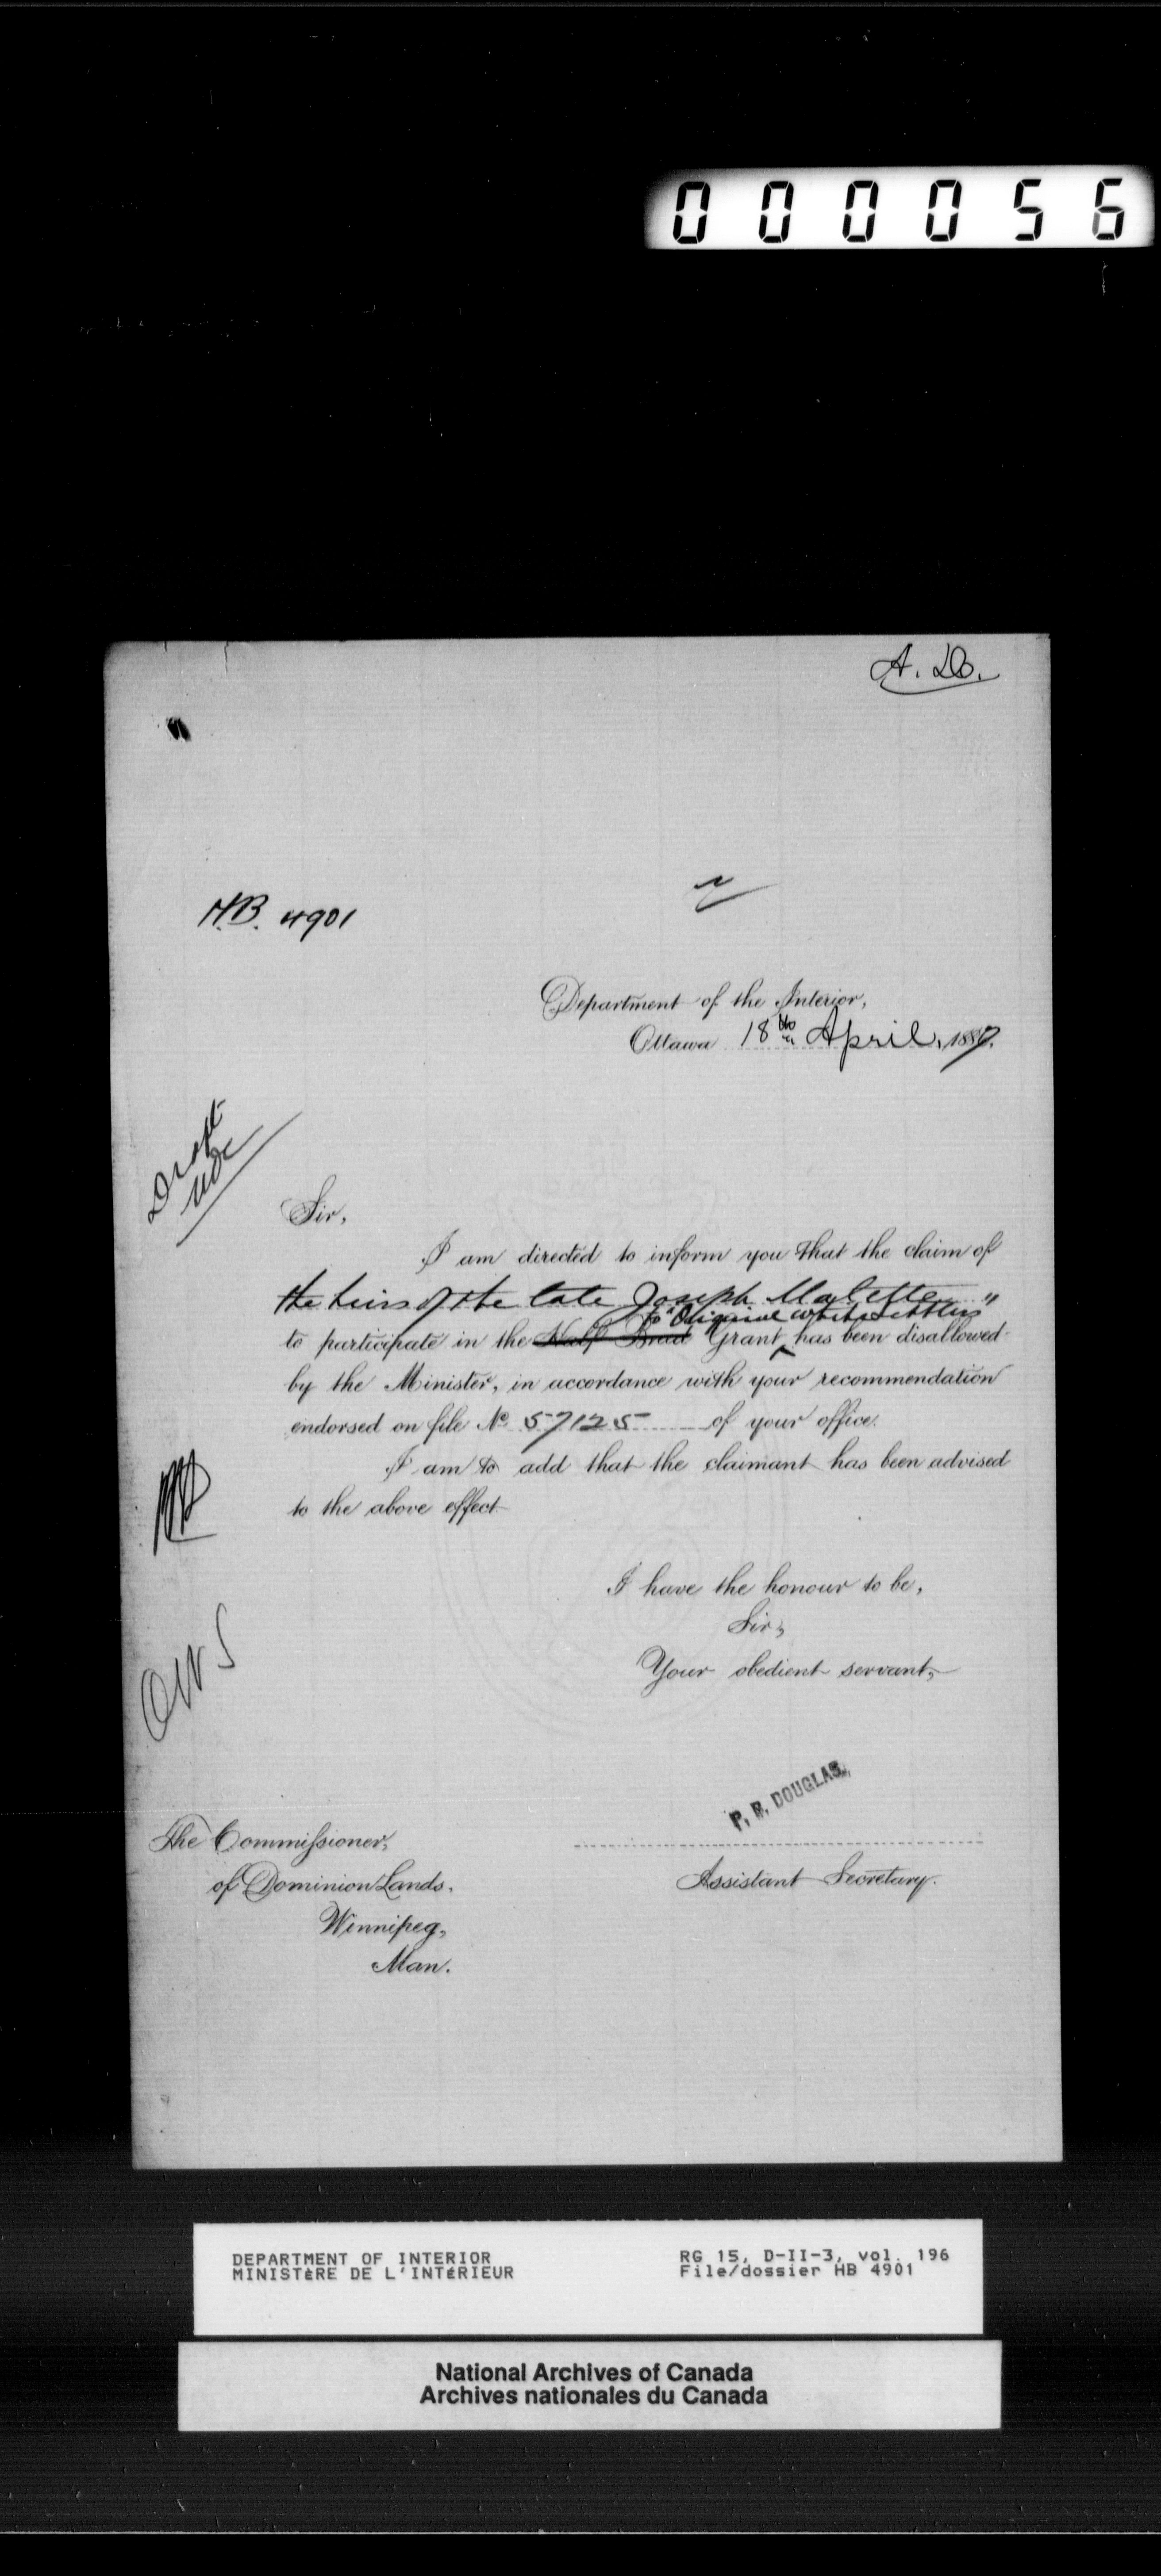 000056
A. D.
H.B. 4901
Department of the Interior,
Ottawa 18th April, 1887.
Draft
Sir,
I am directed to inform you that the claim of
the heirs of the late Joseph Malette
to "Original white settlers"
to participate in the Half Breed Grant has been disallowed
by the Minister, in accordance with your recommendation
endorsed on file No 57125 of your office.
I am to add that the claimant has been advised
to the above effect
I have the honour to be,
Sir,
Your obedient servant,
P. R. DOUGLAS,
The Commissioner,
of Dominion Lands.
Winnipeg,
Man.
Assistant Secretary.
DEPARTMENT OF INTERIOR
MINISTÈRE DE L'INTÉRIEUR
RG 15, D-II-3, vol. 196
File/dossier HB 4901
National Archives of Canada
Archives nationales du Canada